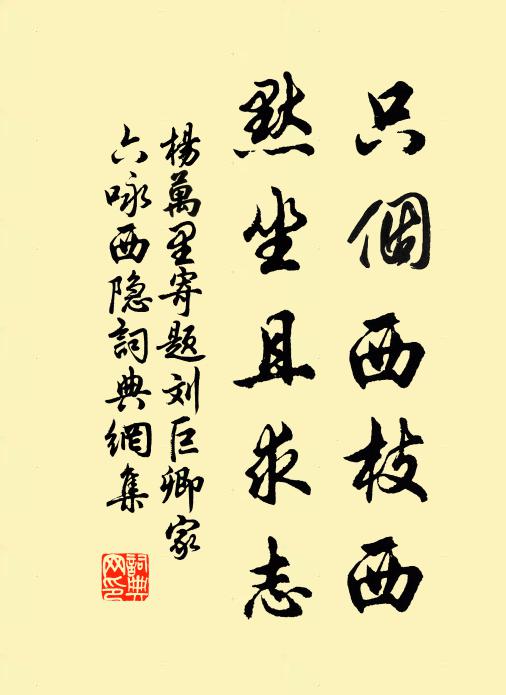 只個西枝西
默坐且求志
楊萬里寄题刘巨卿家
六咏西隐詞典網集
詞典網印